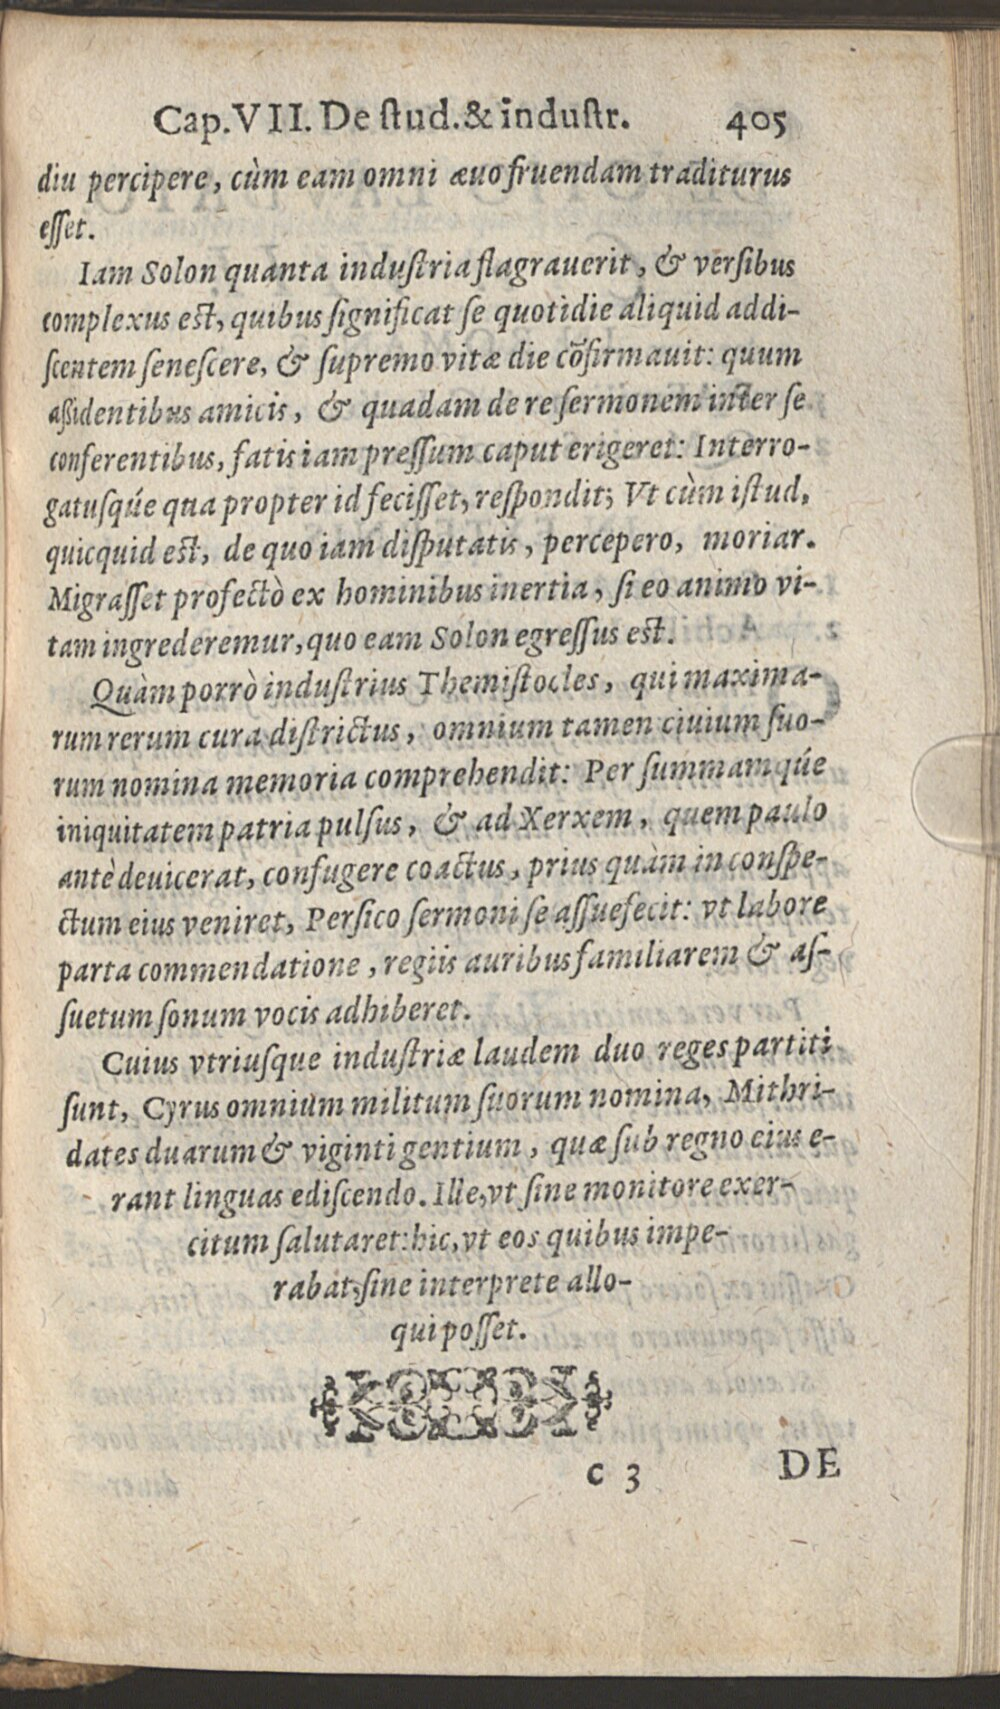 Cap. VII. De ſtud. & induſtr. 405
diu percipere, cùm eam omni æuo fruendam traditurus
eſſet.
Iam Solon quanta induſtria flagrauerit, & verſibus
complexus eſt, quibus ſignificat ſe quotidie aliquid addi-
ſcentem ſeneſcere, & ſupremo vitæ die cõfirmauit: quum
aßidentibus amicis, & quadam de re ſermonem inter ſe
conferentibus, fatis iam preſſum caput erigeret: Interro-
gatuſqúe qua propter id feciſſet, reſpondit; Vt cùm iſtud,
quicquid eſt, de quo iam diſputatis, percepero, moriar.
Migraſſet profectò ex hominibus inertia, ſi eo animo vi-
tam ingrederemur, quo eam Solon egreſſus eſt.
Quàm porrò induſtrius Themiſtocles, qui maxima-
rum rerum cura diſtrictus, omnium tamen ciuium ſuo-
rum nomina memoria comprehendit: Per ſummamqúe
iniquitatem patria pulſus, & ad Xerxem, quem paulo
antè deuicerat, confugere coactus, prius quàm in conſpe-
ctum eius veniret, Perſico ſermoni ſe aſſuefecit: vt labore
parta commendatione, regiis auribus familiarem & aſ-
ſuetum ſonum vocis adhiberet.
Cuius vtriuſque induſtriæ laudem duo reges partiti
ſunt, Cyrus omnium militum ſuorum nomina, Mithri-
dates duarum & viginti gentium, quæ ſub regno eius e-
rant linguas ediſcendo. Ille, vt ſine monitore exer-
citum ſalutaret: hic, vt eos quibus impe-
rabat, ſine interprete allo-
qui poſſet.
c 3 DE